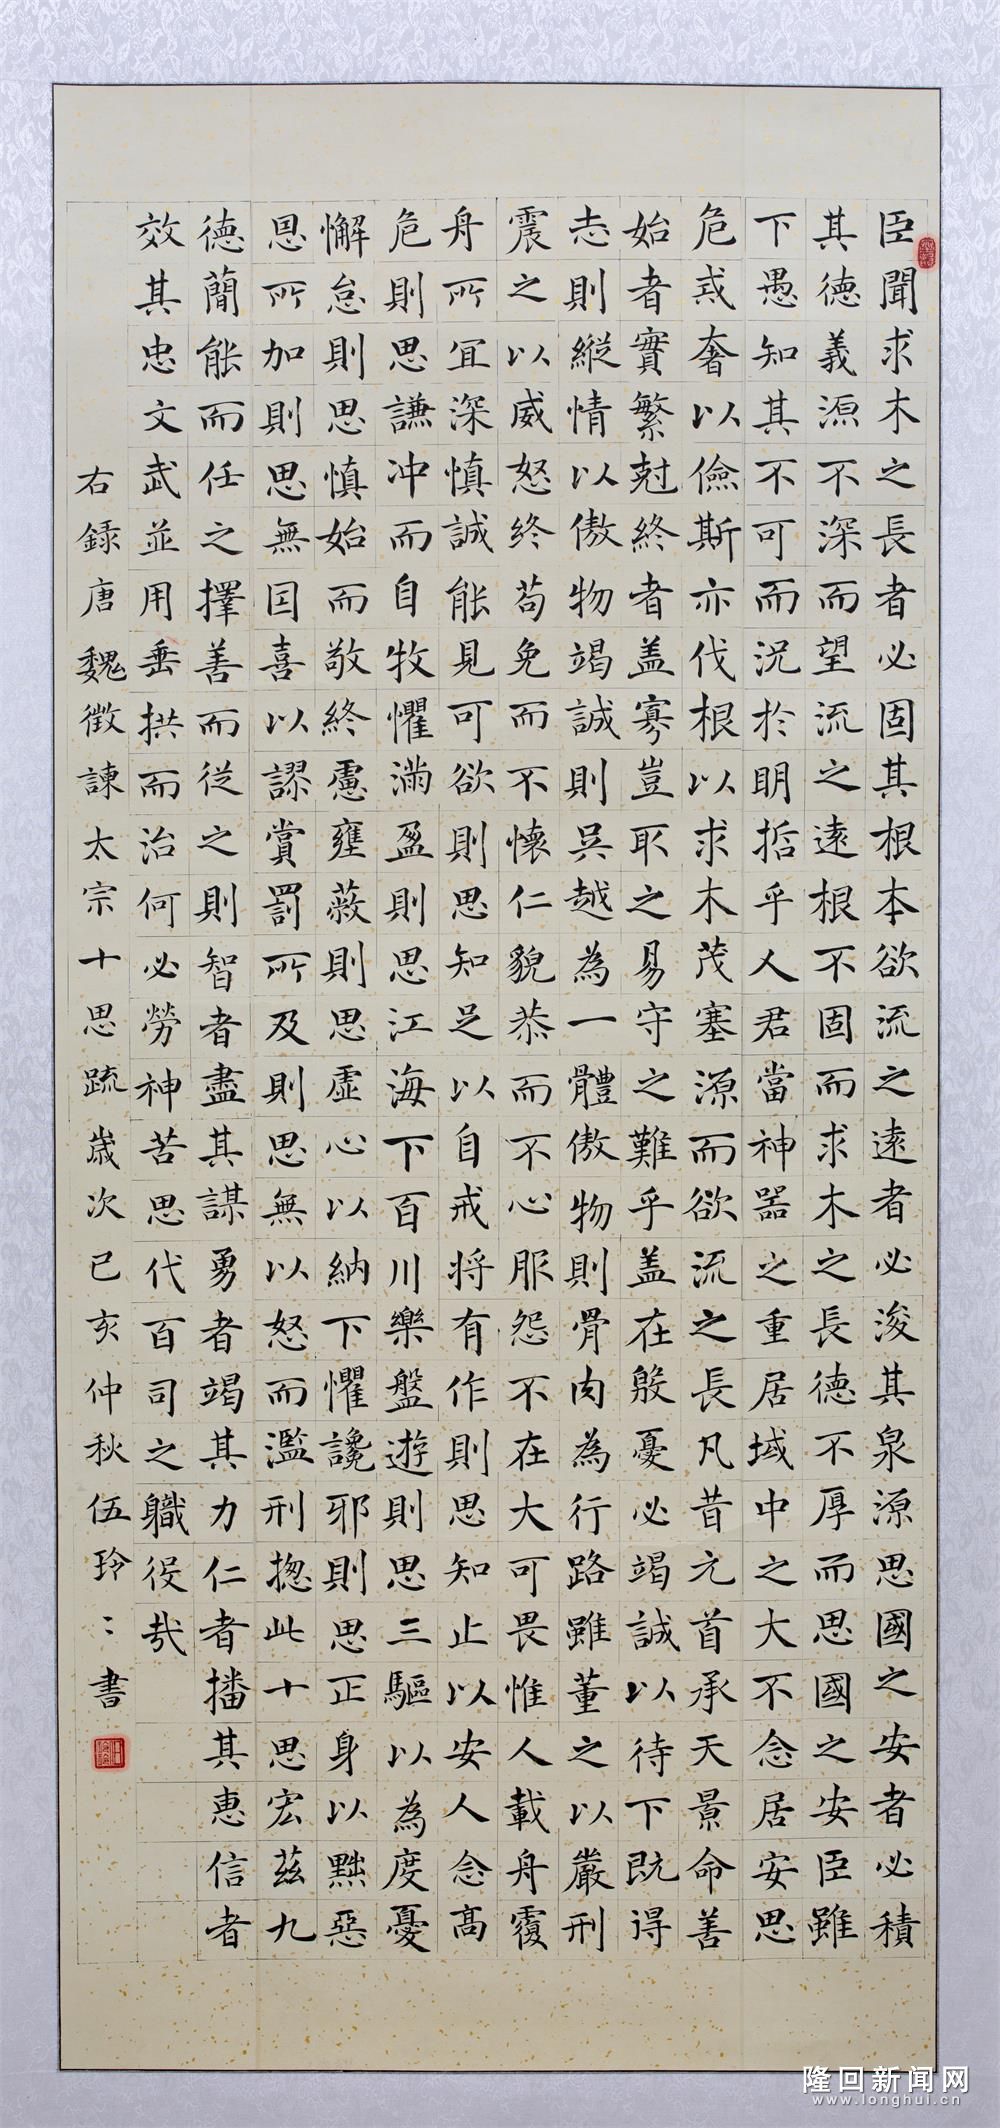 臣聞求木之長者必固其根本欲流之遠者必浚其泉源思國之安者必積
其德義源不深而望流之遠根不固而求木之長德不厚而思國之安臣雖
下愚知其不可而況於明哲乎人君當神器之重居域中之大不念居安思
危戒奢以儉斯亦伐根以求木茂塞源而欲流之長凡昔元首承天景命善
始者實繁尅終者盖寡豈取之易守之難乎盖在殷憂必竭誠以待下既得
志則縱情以傲物竭誠則吳越為一體傲物則骨肉為行路雖董之以嚴刑
震之以威怒終苟免而不懷仁貌恭而不心服怨不在大可畏惟人載舟覆
舟所宜深慎誠能見可欲則思知足以自戒將有作則思知止以安人念高
危則思謙冲而自牧懼滿盈則思江海下百川樂盤遊則思三驅以為度憂
懈怠則思慎始而敬終慮壅蔽則思虛心以納下懼讒邪則思正身以黜惡
恩所加則思無因喜以謬賞罰所及則思無以怒而濫刑揔此十思宏茲九
德簡能而任之擇善而從之則智者盡其謀勇者竭其力仁者播其惠信者
效其忠文武並用垂拱而治何必勞神苦思代百司之職役哉
右録唐魏徵諫太宗十思疏歲次己亥仲秋伍玲〻書
隆回新闻网
www.longhui.cn